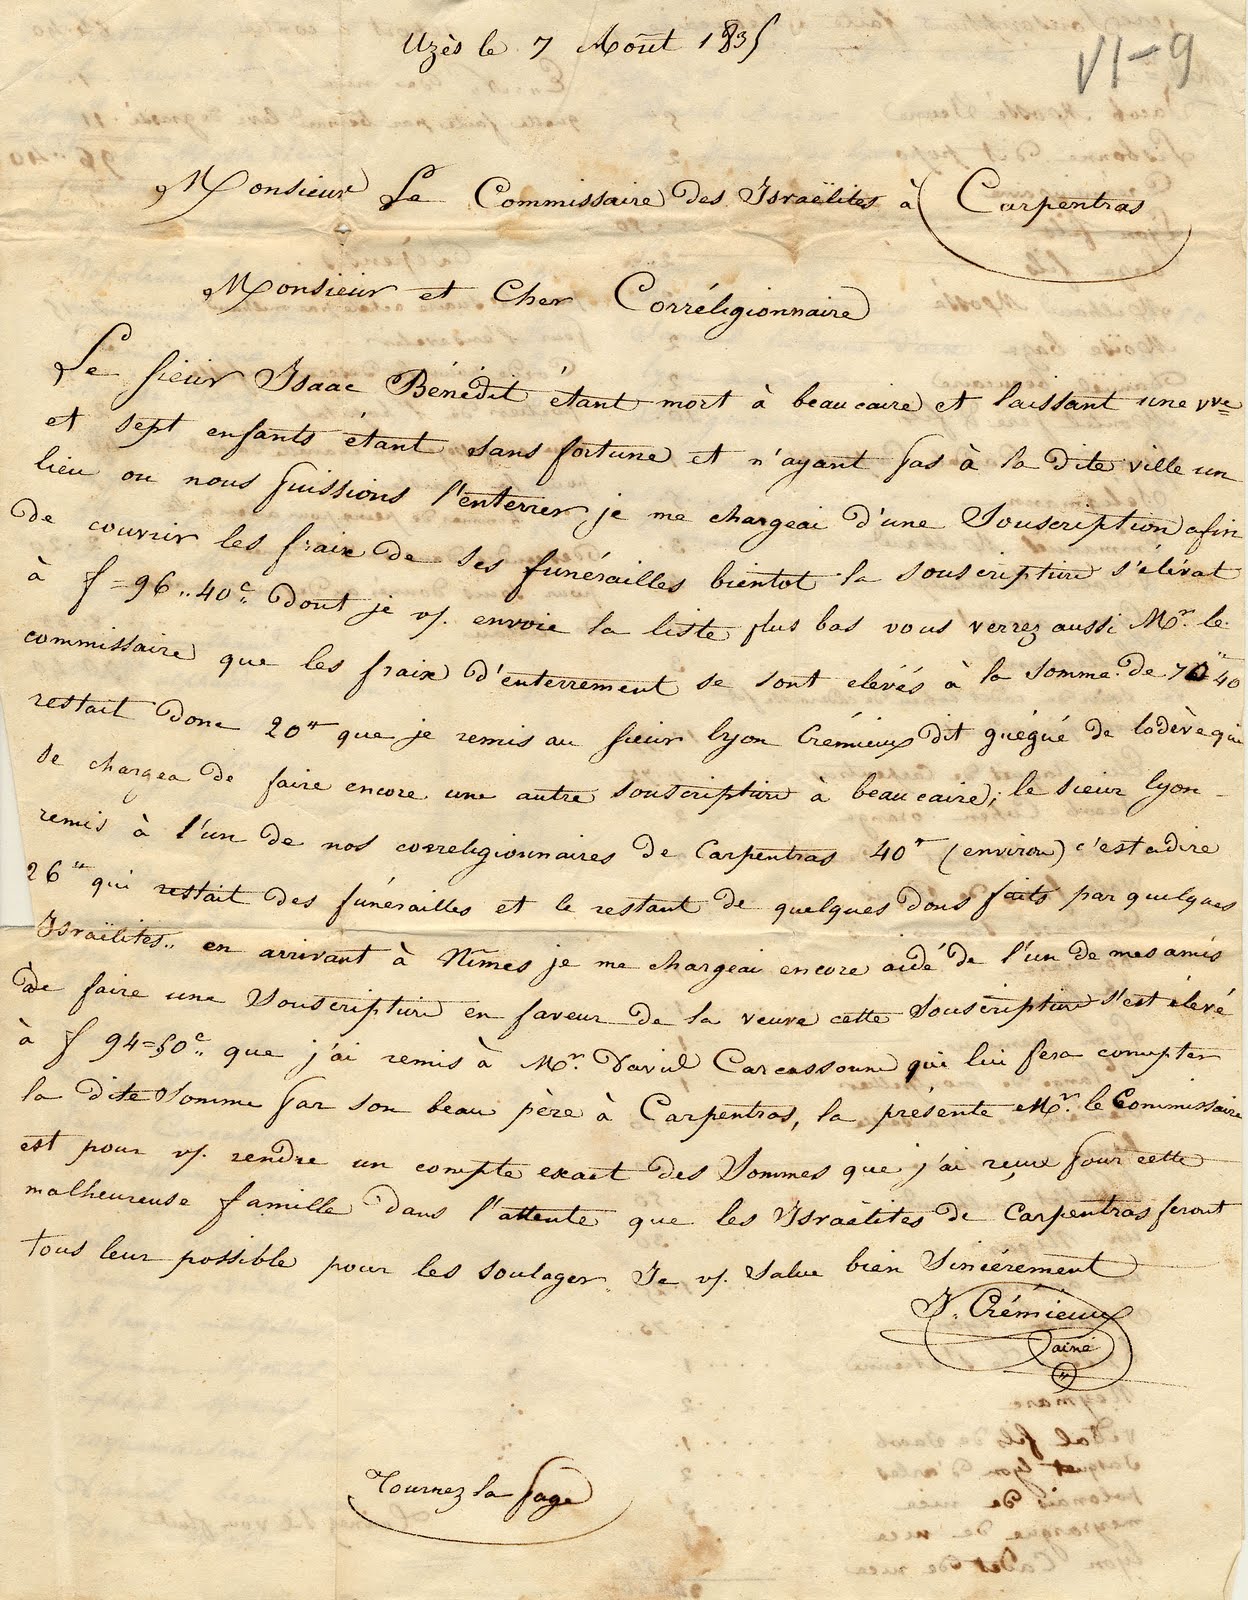 Uzès le 7 Août 1835
VI-9
Monsieur Le Commissaire des Israëlites à Carpentras
Monsieur et Cher Corréligionnaire
Le sieur Isaac Bénédit étant mort à beaucaire et laissant une vve
et sept enfants étant sans fortune et n'ayant pas à la dite ville un
lieu ou nous puissions l'enterrer je me chargeai d'une Souscription afin
de couvrir les fraix de ses funérailles bientot la souscription s'élévat
à f=96..40c.. dont je vs. envoie la liste plus bas vous verrez aussi Mr. le
commissaire que les fraix d'enterrement se sont elévés à la somme de 70"40
restait donc 20tt que je remis au sieur lyon Crémieux dit guégué de lodève qui
se chargea de faire encore une autre souscription à beaucaire; le sieur lyon
remis à l'un de nos correligionnaires de Carpentras 40tt (environ) c'est a dire
26tt qui restait des funérailles et le restant de quelques dons faits par quelques
Israëlites.. en arrivant à Nîmes je me chargeai encore aidé de l'un de mes amis
de faire une Souscription en faveur de la veuve cette Souscription s'est élevé
à f 94=50c.. que j'ai remis à Mr. David Carcassonne qui lui fera compter
la dite Somme par son beau père à Carpentras, la présente Mr. le Commissaire
est pour vs. rendre un compte exact des Sommes que j'ai reçue pour cette
malheureuse famille dans l'attente que les Israëlites de Carpentras feront
tous leur possible pour les soulager. Je vs. Salue bien Sincérement
J. Crémieux
ainé
Tournez la page